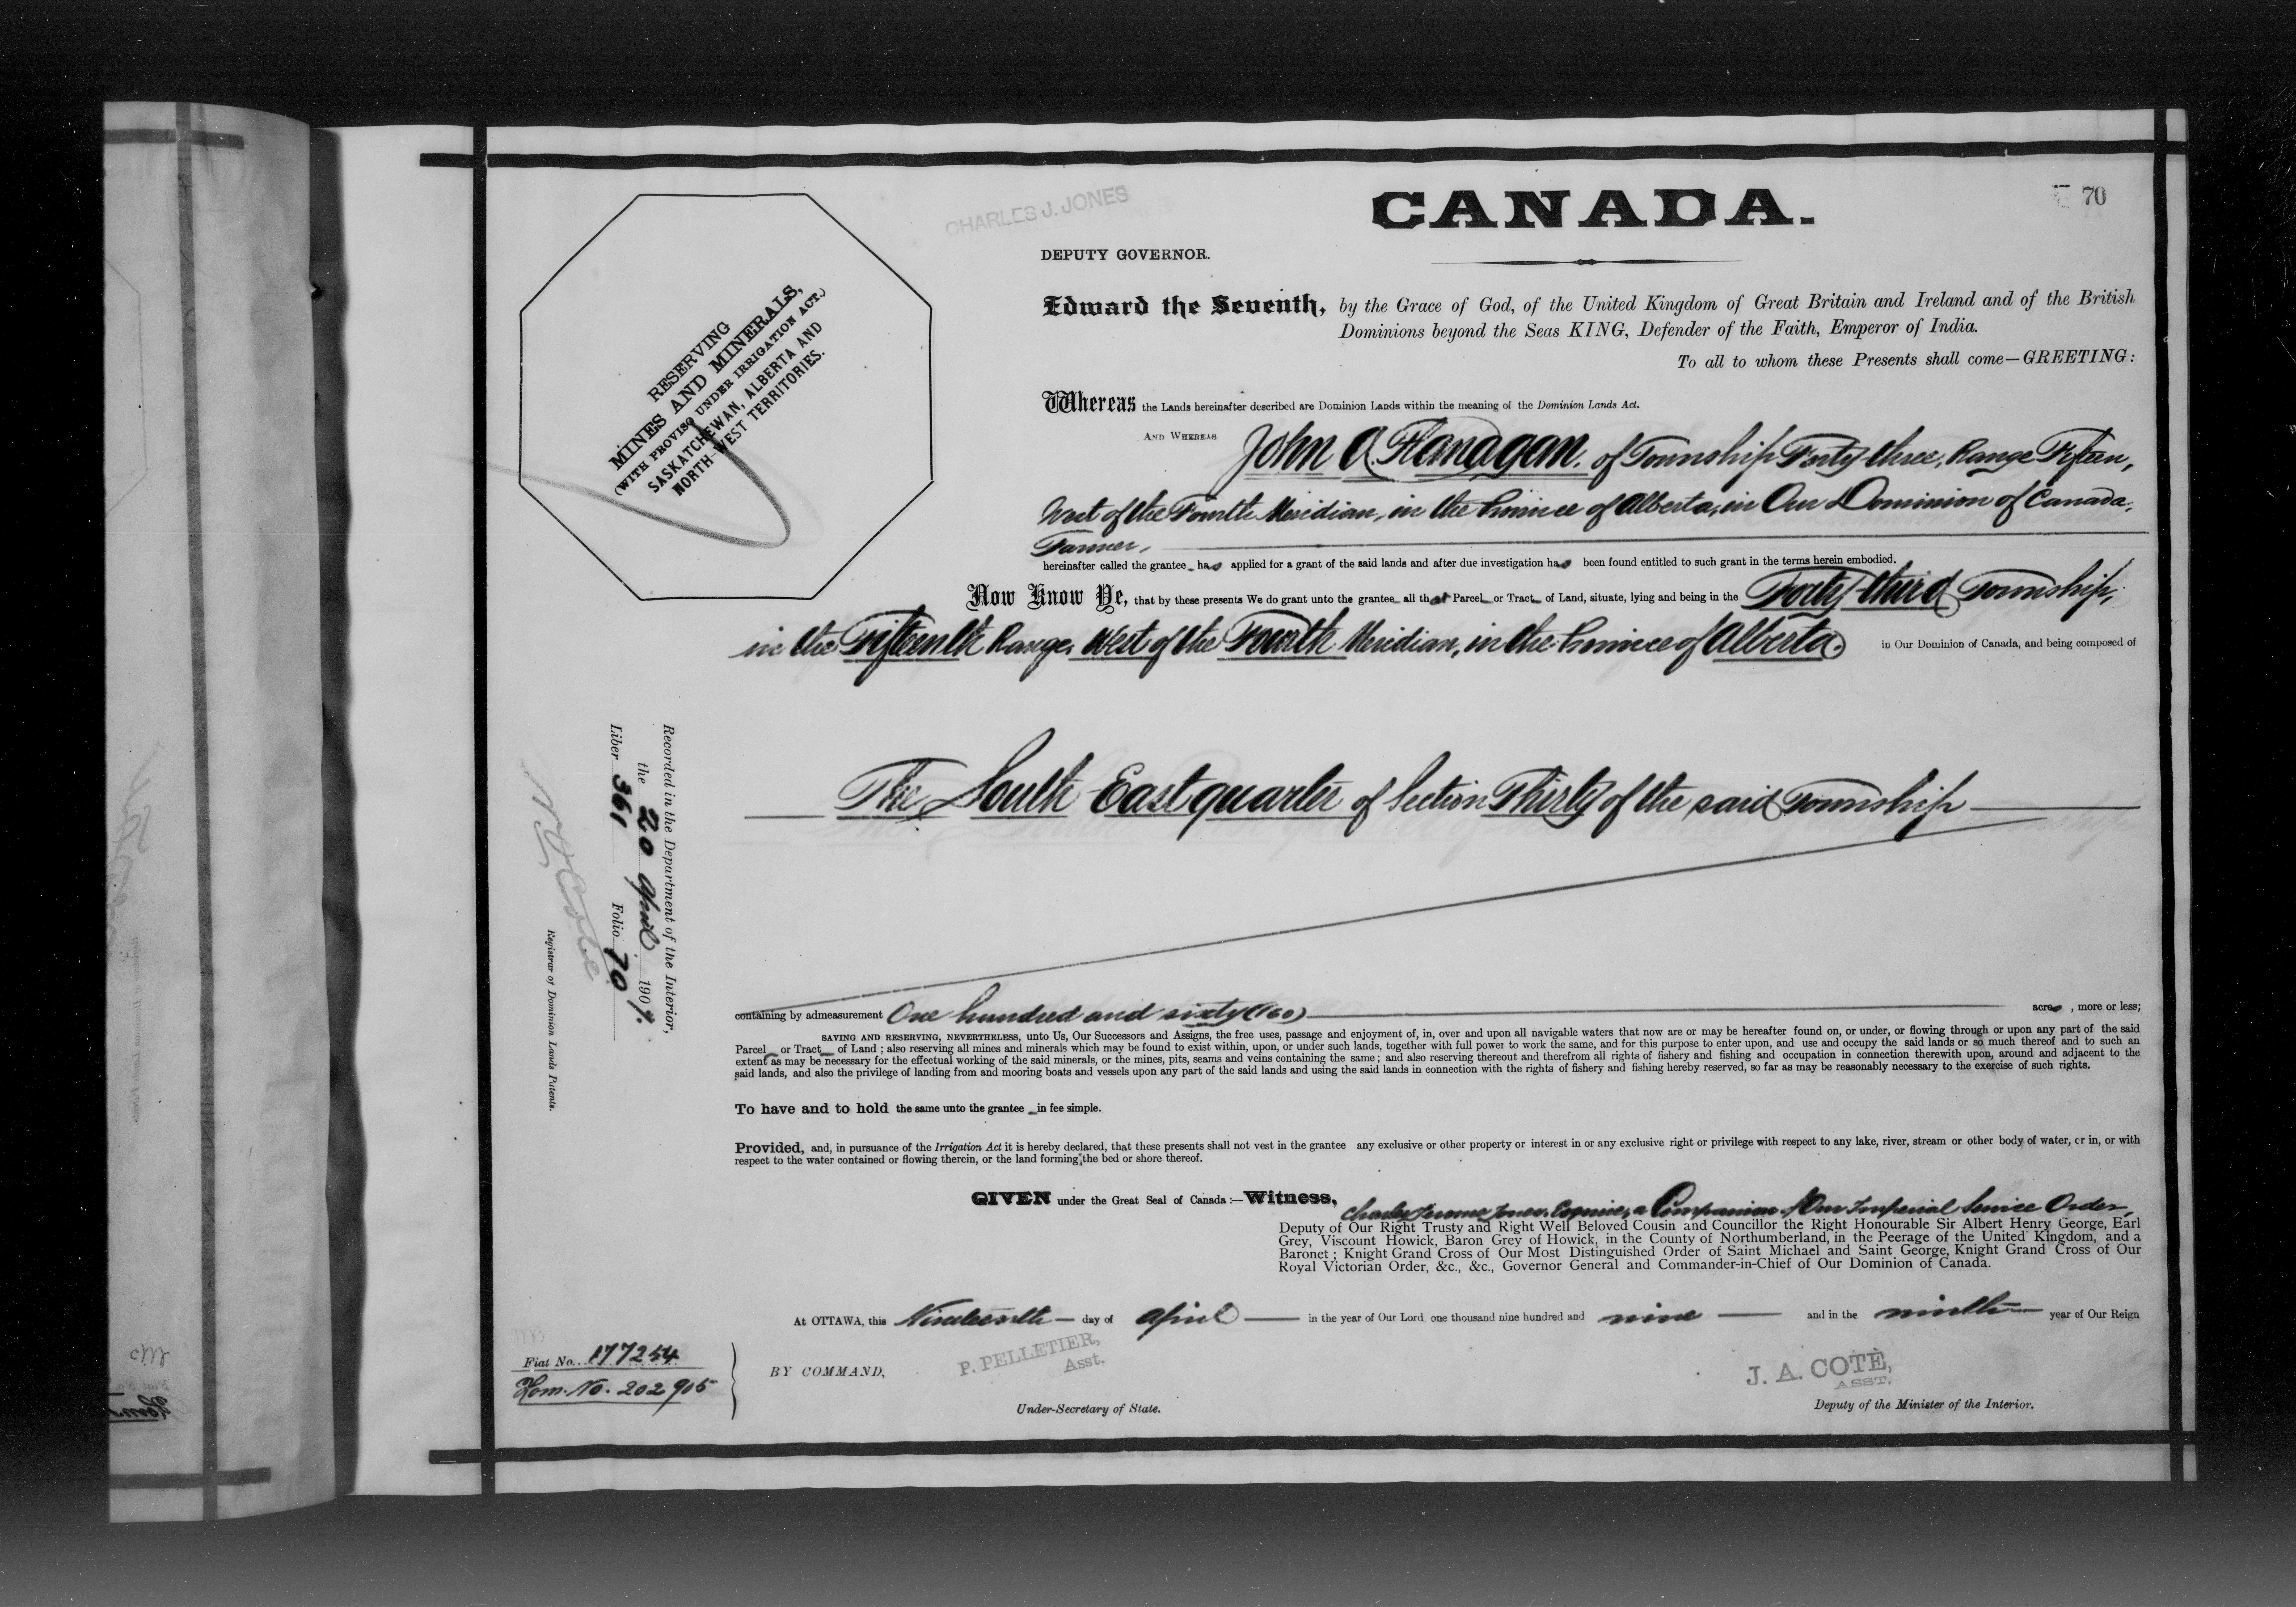 CHARLES J. JONES
CANADA.
70
DEPUTY GOVERNOR.
RESERVING
MINES AND MINERALS,
(WITH PROVISO UNDER IRRIGATION ACT.)
SASKATCHEWAN, ALBERTA AND
NORTH-WEST TERRITORIES.
Edward the Seventh, by the Grace of God, of the United Kingdom of Great Britain and Ireland and of the British
Dominions beyond the Seas KING, Defender of the Faith, Emperor of India.
To all to whom these Presents shall come—GREETING:
Whereas the Lands hereinafter described are Dominion Lands within the meaning of the Dominion Lands Act.
AND WHEREAS John A. Flanagan, of Township Forty-three, Range Fifteen,
West of the Fourth Meridian, in the Province of Alberta, in Our Dominion of Canada,
Farmer,
hereinafter called the grantee has applied for a grant of the said lands and after due investigation has been found entitled to such grant in the terms herein embodied.
Now Know Ye, that by these presents We do grant unto the grantee all that Parcel or Tract of Land, situate, lying and being in the Forty-third Township,
in the Fifteenth Range, West of the Fourth Meridian, in the Province of Alberta, in Our Dominion of Canada, and being composed of
The South East quarter of Section Thirty of the said Township
containing by admeasurement One hundred and sixty (160) acres, more or less;
SAVING AND RESERVING, NEVERTHELESS, unto Us, Our Successors and Assigns, the free uses, passage and enjoyment of, in, over and upon all navigable waters that now are or may be hereafter found on, or under, or flowing through or upon any part of the said
Parcel or Tract of Land; also reserving all mines and minerals which may be found to exist within, upon, or under such lands, together with full power to work the same, and for this purpose to enter upon, and use and occupy the said lands or so much thereof and to such an
extent as may be necessary for the effectual working of the said minerals, or the mines, pits, seams and veins containing the same; and also reserving thereout and therefrom all rights of fishery and fishing and occupation in connection therewith upon, around and adjacent to the
said lands, and also the privilege of landing from and mooring boats and vessels upon any part of the said lands and using the said lands in connection with the rights of fishery and fishing hereby reserved, so far as may be reasonably necessary to the exercise of such rights.
To have and to hold the same unto the grantee in fee simple.
Provided, and, in pursuance of the Irrigation Act it is hereby declared, that these presents shall not vest in the grantee any exclusive or other property or interest in or any exclusive right or privilege with respect to any lake, river, stream or other body of water, or in, or with
respect to the water contained or flowing therein, or the land forming the bed or shore thereof.
GIVEN under the Great Seal of Canada:—Witness, Charles Jerome Jones, Esquire, a Companion of Our Imperial Service Order,
Deputy of Our Right Trusty and Right Well Beloved Cousin and Councillor the Right Honourable Sir Albert Henry George, Earl
Grey, Viscount Howick, Baron Grey of Howick, in the County of Northumberland, in the Peerage of the United Kingdom, and a
Baronet; Knight Grand Cross of Our Most Distinguished Order of Saint Michael and Saint George, Knight Grand Cross of Our
Royal Victorian Order, &c., &c., Governor General and Commander-in-Chief of Our Dominion of Canada.
At OTTAWA, this Nineteenth day of April in the year of Our Lord, one thousand nine hundred and nine and in the ninth year of Our Reign
BY COMMAND,
P. PELLETIER,
Asst.
Under-Secretary of State.
J. A. COTÉ,
ASST.
Deputy of the Minister of the Interior.
Fiat No. 177254
Hom. No. 202905
Recorded in the Department of the Interior,
the 20 April 1909.
Liber 361 Folio 70
Registrar of Dominion Lands Patents.